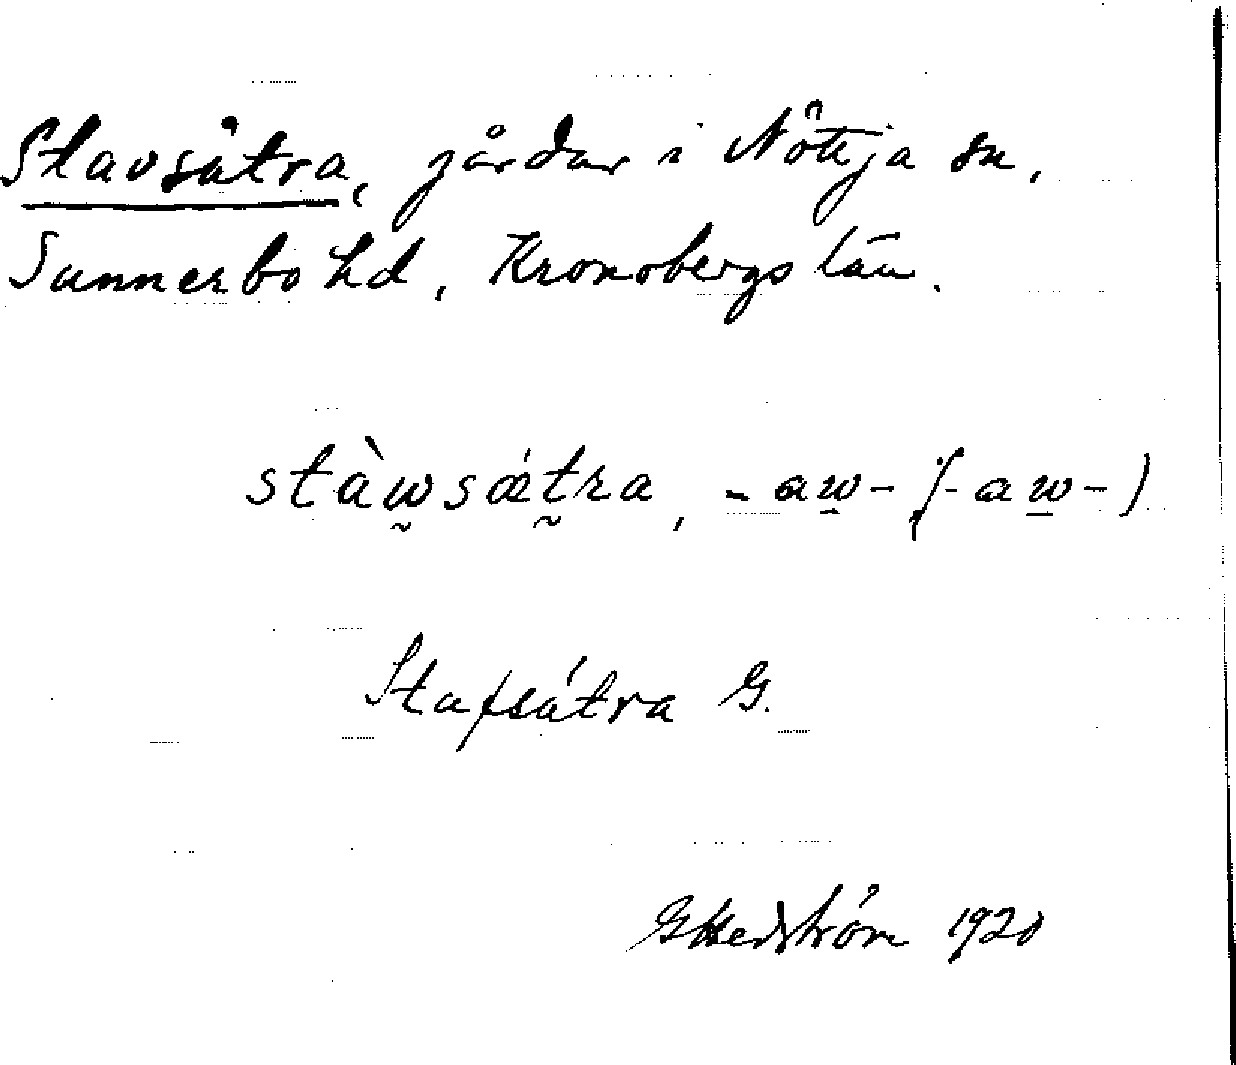 Stavsätra, gårdar i Nöttja sn,
Sunnerbo hd, Kronobergs län.
stàw̰sǽt̰ra, -aw̲- (-aw̲-)
Stafsätra G.
G Hedström 1920